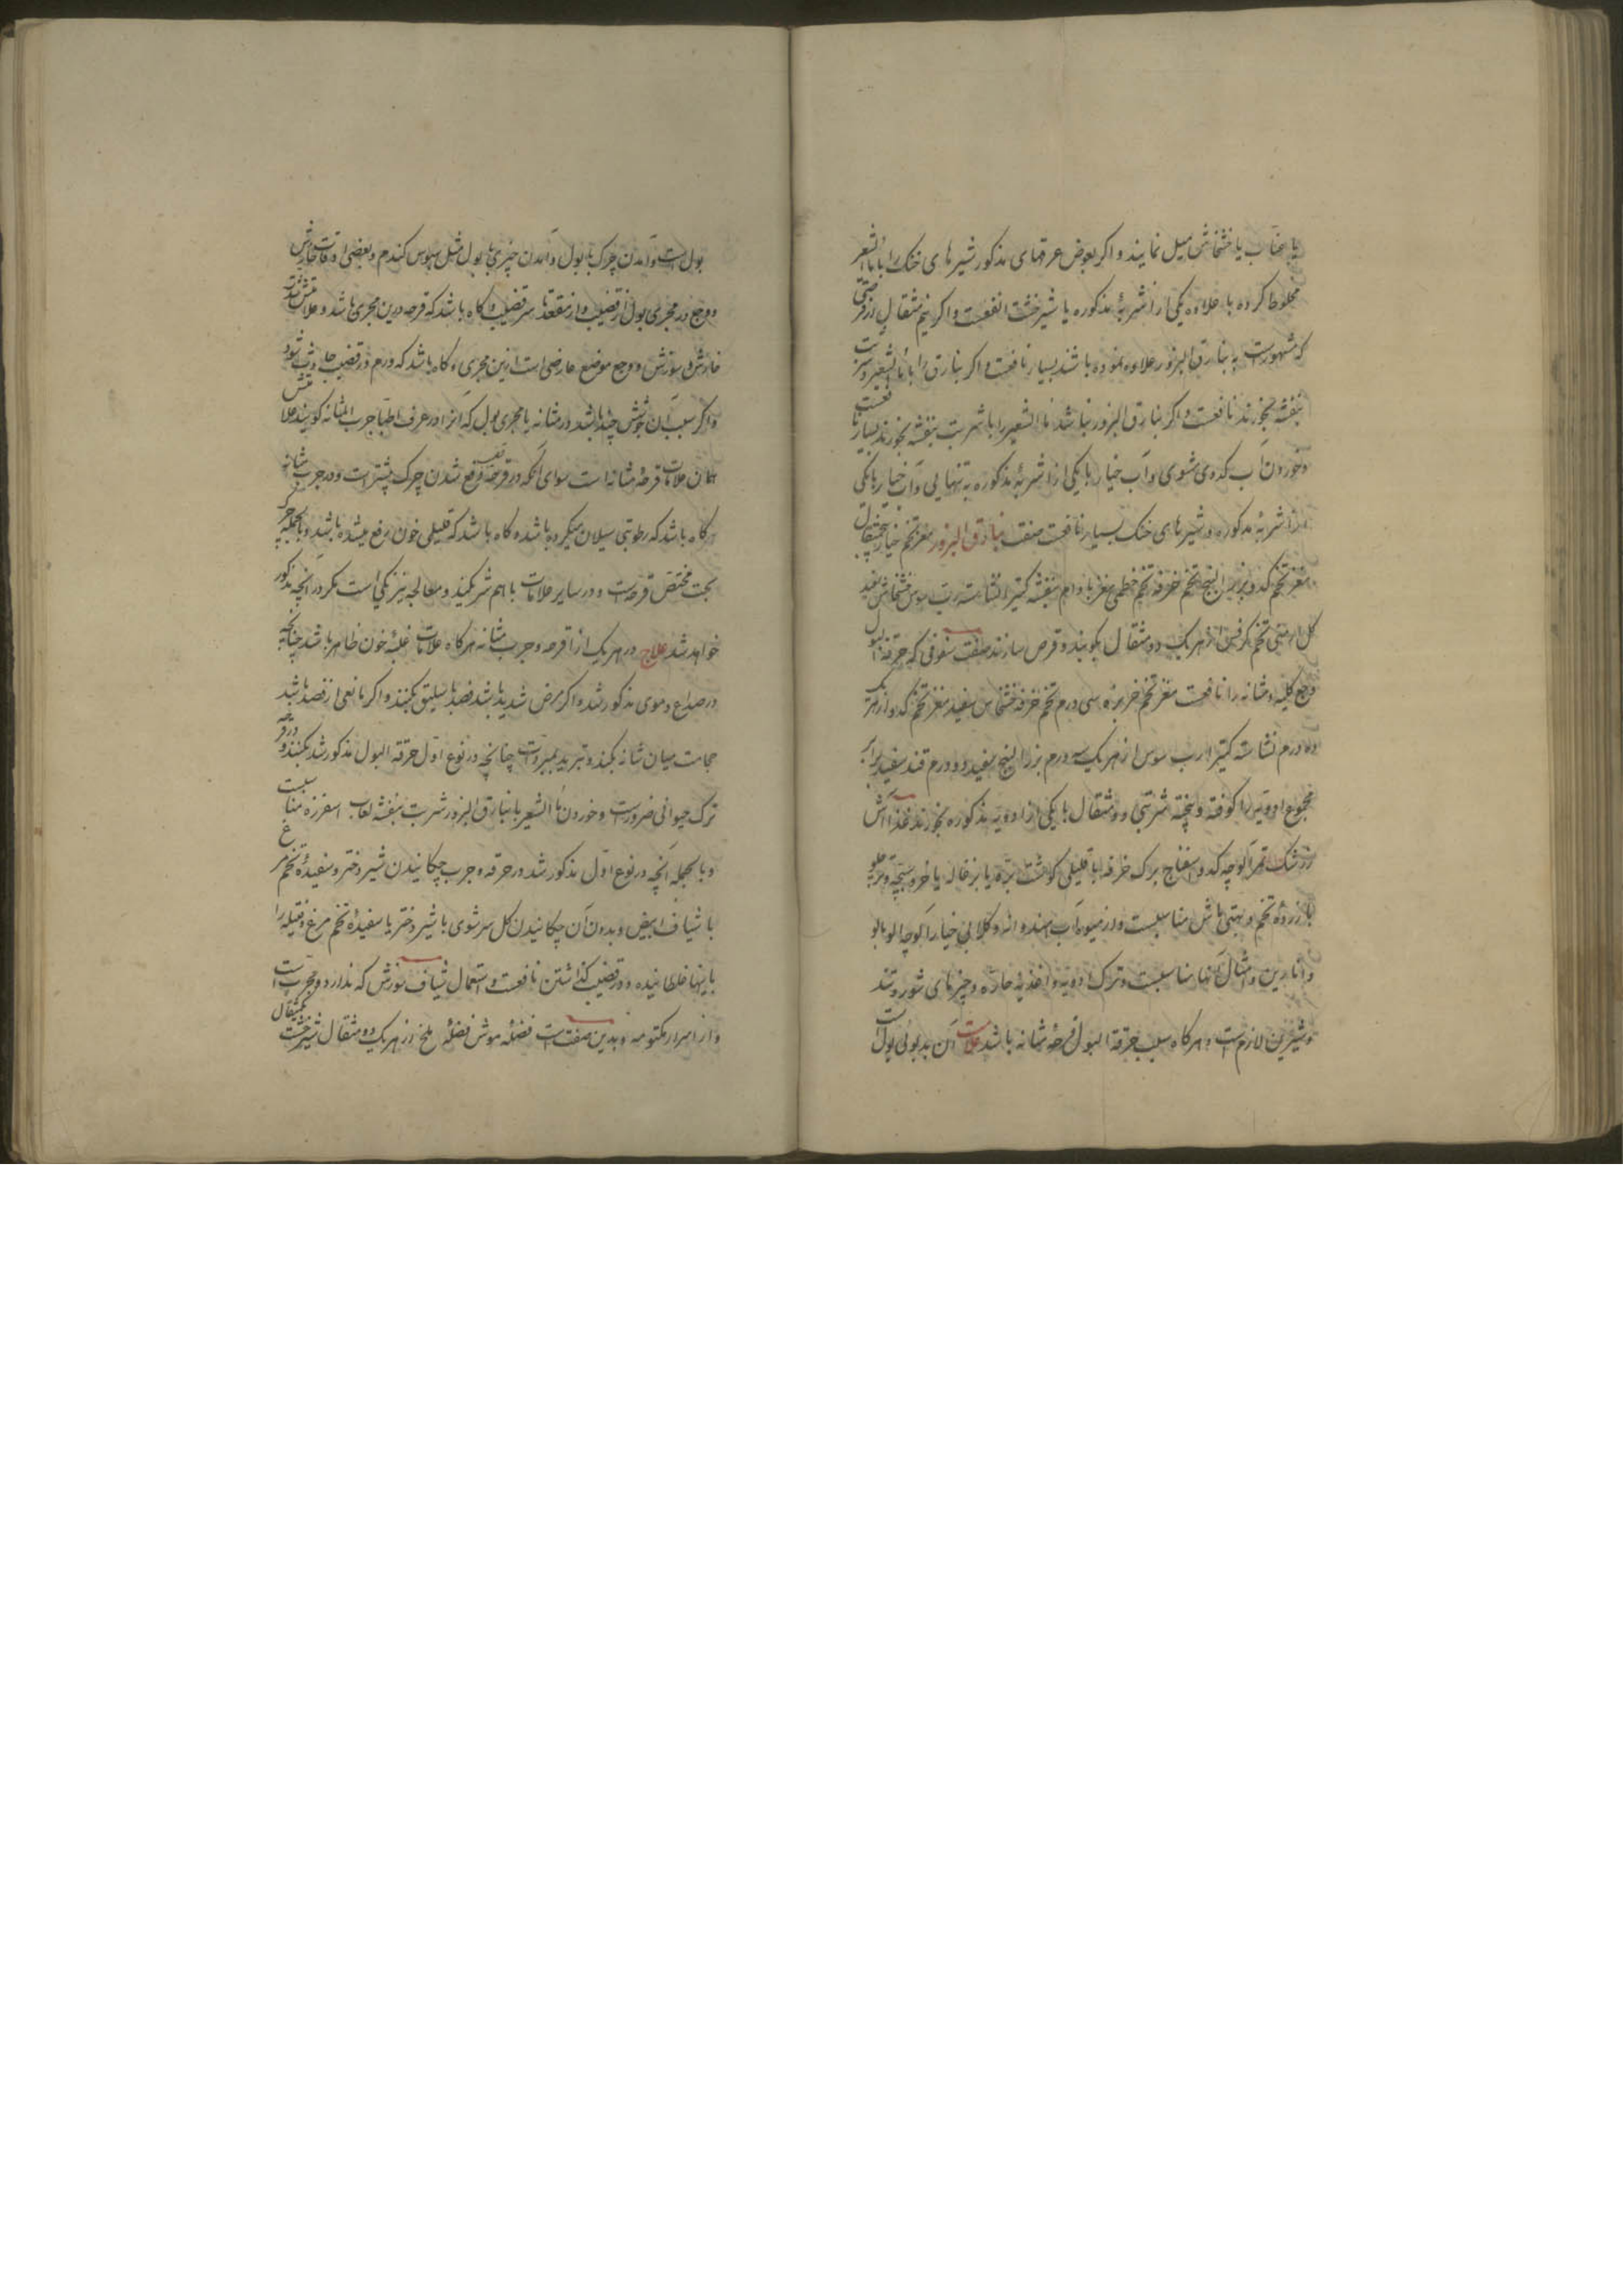 یا عناب یا خشخاش میل نمایند و اکر بعوض عرقهای مذکور شیرهای خنک را با ماءالشعیر
مخلوط کرده با علاوه یکی از اشربهٔ مذکوره یا شیرخشت انفعست و اکر نیم مثقال از قرصی
که مشهورست به بنادق البزور علاوه نموده باشند بسیار نافعست و اکر بنادق را با ماءالشعیر و شربت
بنفشه بخورند نافعست و اکر بنادق البزور نباشد ماءالشعیر را با شربت بنفشه بخورند بسیار نافعست
و خوردن آب کدوی مشوی و آب خیار با یکی از اشربهٔ مذکوره به تنهایی و آب خیار با یکی
از اشربهٔ مذکوره و شیرهای خنک بسیار نافعست صفت بنادق البزور مغز تخم خیار پنجمثقال
مغز تخم کدو بزرالبنج تخم خرفه تخم خطمی مغز بادام بنفشه کتیرا نشاسته رب سوس خشخاش سفید
کل ارمنی تخم کرفس از هریک دو مثقال بکوبند و قرص سازند صفت سفوفی که حرقة البول
وجع کلیه و مثانه را نافعست مغز تخم خربزه سی درم تخم خرفه خشخاش سفید مغز تخم کدو از هریک
ده درم نشاسته کتیرا رب سوس از هریک سه درم بزرالبنج سفید دو درم قند سفید برابر
مجموع ادویه را کوفته و بیخته شربتی دو مثقال با یکی از ادویه مذکوره بخورند غذا آش
زرشک تمر آلوچه کدو اسفناج برک خرفه با قلیلی کوشت بره یا بزغاله یا خروسبچه و
با زردهٔ تخم و بهتی ماش مناسبست و از میوه آب هندوانه و کلابی خیار آلوچه آلوبالو
و انارین و امثال آنها مناسبست و ترک ادویه و اغذیه حاره و چیزهای شور و تند
و شیرین لازمست و هرکاه سبب حرقة البول قرحهٔ مثانه باشد علامت آن بدبوئی بول است
بول است و آمدن چرک با بول و آمدن چیزی با بول مثل سپوس کندم و بعضی اوقات خارش
و وجع در مجری بول از قضیب و از مقعد تا سر قضیب و کاه باشد که قرحه در این مجری باشد و علامتش شدت
خارش و سوزش و وجع موضع عارضی است ازین مجری و کاه باشد که ورم در قضیب حادث شود
و اکر سبب آن جوشش چند باشد در مثانه یا مجری بول که آنرا در عرف اطبا جرب المثانه کویند علامتش
همان علامات قرحهٔ مثانه است سوای آنکه در قرحه دفع شدن چرک بیشتر است و در جرب مثانه
کاه باشد که رطوبتی سیلان میکرده باشد و کاه باشد که قلیلی خون دفع میشده باشد و بالجمله چرک
بحت مختص قرحه است و در سایر علامات با هم شریکند و معالجه نیز یکی است مکر در آنچه مذکور
خواهد شد علاج در هریک از قرحه و جرب مثانه هرکاه علامات غلبهٔ خون ظاهر باشد چنانچه
در صداع دموی مذکور شد و اکر مرض شدید باشد فصد باسلیق بکنند و اکر مانعی از فصد باشد
حجامت میان شانه بکنند و تبرید بمبردات چنانچه در نوع اول حرقة البول مذکور شد بکنند و در قرحه
ترک حیوانی ضرورست و خوردن ماءالشعیر با بنادق البزور شربت بنفشه لعاب اسفرزه مناسبست
و بالجمله آنچه در نوع اول مذکور شد در حرقه و جرب چکانیدن شیر دختر و سفیدهٔ تخم مرغ
با شیاف ابیض و بدون آن چکانیدن کل سرشوی با شیر دختر یا سفیدهٔ تخم مرغ و فتیله را
باینها غلطانیده و در قضیب کذاشتن نافعست و استعمال شیاف سوزش که ندارد و مجربست
و از اسرار مکتومه و بدین صفت است فضلهٔ موش فضلهٔ ملخ از هریک دو مثقال شیرخشت یکمثقال